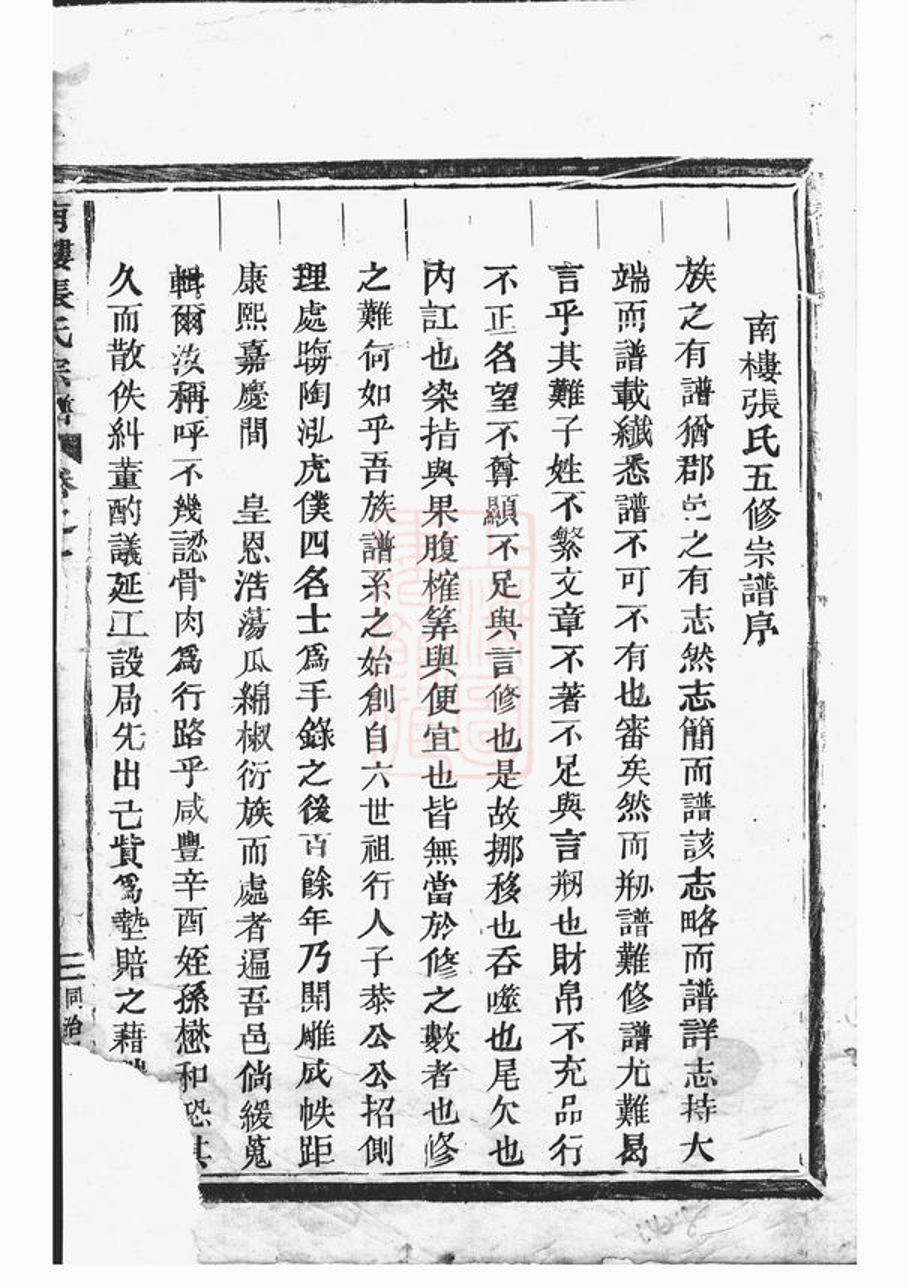 南樓張氏五修宗譜序
族之有譜猶郡邑之有志然志簡而譜該志略而譜詳志持大
端而譜載纖悉譜不可不有也審矣然而剏譜難修譜尤難曷
言乎其難子姓不繁文章不著不足與言剏也財帛不充品行
不正名望不尊顯不足與言修也是故挪移也吞噬也尾欠也
內訌也染指與果腹榷筭與便宜也皆無當於修之數者也修
之難何如乎吾族譜系之始創自六世祖行人子恭公公招側
理處晦陶泓虎僕四名士爲手錄之後百餘年乃開雕成帙距
康熙嘉慶間 皇恩浩蕩瓜綿椒衍族而處者遍吾邑倘緩蒐
輯爾汝稱呼不幾認骨肉爲行路乎咸豐辛酉姪孫懋和恐其
久而散佚糾董酌議延工設局先出己貲爲墊賠之藉
南樓張氏宗譜 卷之一 三 同治